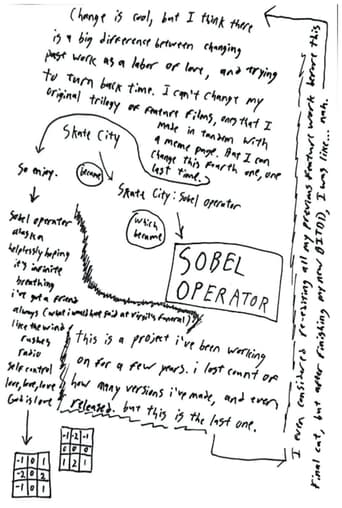 Change is cool, but I think there
is a big difference between changing
past work as a labor of love, and trying
to turn back time. I can't change my
original trilogy of feature films, ones that I
made in tandem with
a meme page. But I can
change this fourth one, one
last time.
Skate City
became
Skate City: Sobel operator
which
became
SOBEL
OPERATOR
So enjoy.
Sobel operator
alaskan
helplessly hoping
its infinite
breathing
i've got a friend
always (what i would have said at virgil's funeral)
like the wind
rushes
radio
self control
love, love, love
God is love
-1 0 1
-2 0 2
-1 0 1
-1 -2 -1
0 0 0
1 2 1
this is a project i've been working
on for a few years. i lost count of
how many versions i've made, and even
released. but this is the last one.
I even considered re-releasing all my previous feature work before this
final cut, but after finishing my new
I was like... nah.